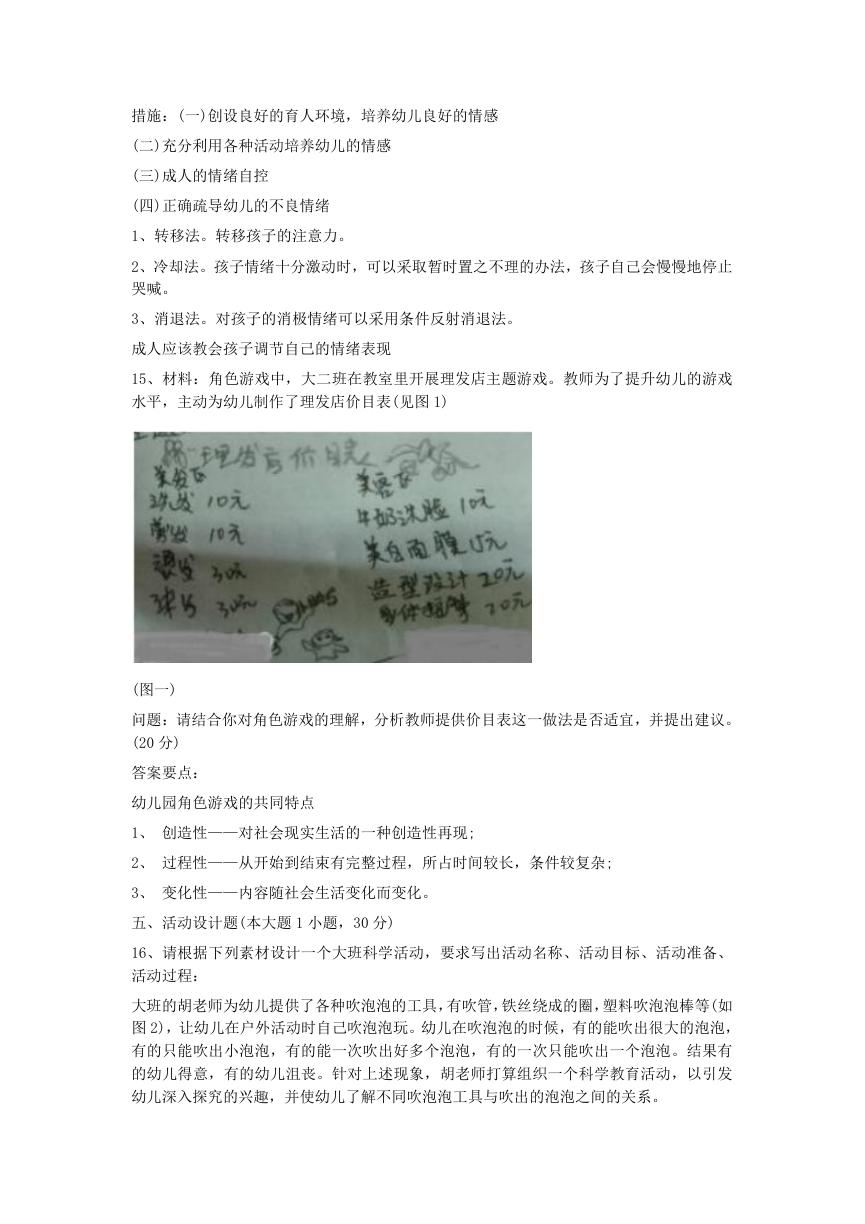 措施：(一)创设良好的育人环境，培养幼儿良好的情感
(二)充分利用各种活动培养幼儿的情感
(三)成人的情绪自控
(四)正确疏导幼儿的不良情绪
1、转移法。转移孩子的注意力。
2、冷却法。孩子情绪十分激动时，可以采取暂时置之不理的办法，孩子自己会慢慢地停止
哭喊。
3、消退法。对孩子的消极情绪可以采用条件反射消退法。
成人应该教会孩子调节自己的情绪表现
15、材料：角色游戏中，大二班在教室里开展理发店主题游戏。教师为了提升幼儿的游戏
水平，主动为幼儿制作了理发店价目表(见图1)
理发店价目表
美发区
洗发 10元
剪发 10元
烫发 30元
染发 30元
美容区
牛奶洗脸 10元
美白面膜 15元
造型设计 20元
身体按摩 20元
(图一)
问题：请结合你对角色游戏的理解，分析教师提供价目表这一做法是否适宜，并提出建议。
(20分)
答案要点：
幼儿园角色游戏的共同特点
1、 创造性——对社会现实生活的一种创造性再现;
2、 过程性——从开始到结束有完整过程，所占时间较长，条件较复杂;
3、 变化性——内容随社会生活变化而变化。
五、活动设计题(本大题1小题，30分)
16、请根据下列素材设计一个大班科学活动，要求写出活动名称、活动目标、活动准备、
活动过程：
大班的胡老师为幼儿提供了各种吹泡泡的工具,有吹管,铁丝绕成的圈,塑料吹泡泡棒等(如
图2)，让幼儿在户外活动时自己吹泡泡玩。幼儿在吹泡泡的时候，有的能吹出很大的泡泡，
有的只能吹出小泡泡，有的能一次吹出好多个泡泡，有的一次只能吹出一个泡泡。结果有
的幼儿得意，有的幼儿沮丧。针对上述现象，胡老师打算组织一个科学教育活动，以引发
幼儿深入探究的兴趣，并使幼儿了解不同吹泡泡工具与吹出的泡泡之间的关系。